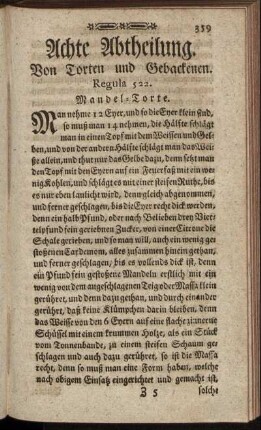 319
Achte Abtheilung.
Von Torten und Gebackenen.
Regula 522.
Mandel-Torte.
Man nehme 12 Eyer, und so die Eyer klein sind,
so muß man 14 nehmen, die Hälfte schlägt
man in einen Topf mit dem Weissen und Gel-
ben, und von der andern Hälfte schlägt man das Weis-
se allein, und thut nur das Gelbe dazu, denn setzt man
den Topf mit den Eyern auf ein Feuerfaß mit ein we-
nig Kohlen, und schlägt es mit einer steifen Ruthe, bis
es nur eben laulicht wird, denn gleich abgenommen,
und ferner geschlagen, bis die Eyer recht dick werden,
denn ein halb Pfund, oder nach Belieben drey Vier-
telpfund fein geriebnen Zucker, von einer Citrone die
Schale gerieben, und so man will, auch ein wenig ge-
stoßenen Cardemom, alles zusammen hinein gethan,
und ferner geschlagen, bis es vollends dick ist, denn
ein Pfund fein gestoßene Mandeln erstlich mit ein
wenig von dem angeschlagenen Teig oder Massa klein
gerühret, und denn dazu gethan, und durch einander
gerühret, daß keine Klümpchen darin bleiben, denn
das Weisse von den 6 Eyern auf eine flache zinnerne
Schüssel mit einem krummen Holze, als ein Stück
vom Tonnenbande, zu einem steifen Schaum ge-
schlagen und auch dazu gerühret, so ist die Massa
recht, denn so muß man eine Form haben, welche
nach obigem Einsatz eingerichtet und gemacht ist,
3 5 solche